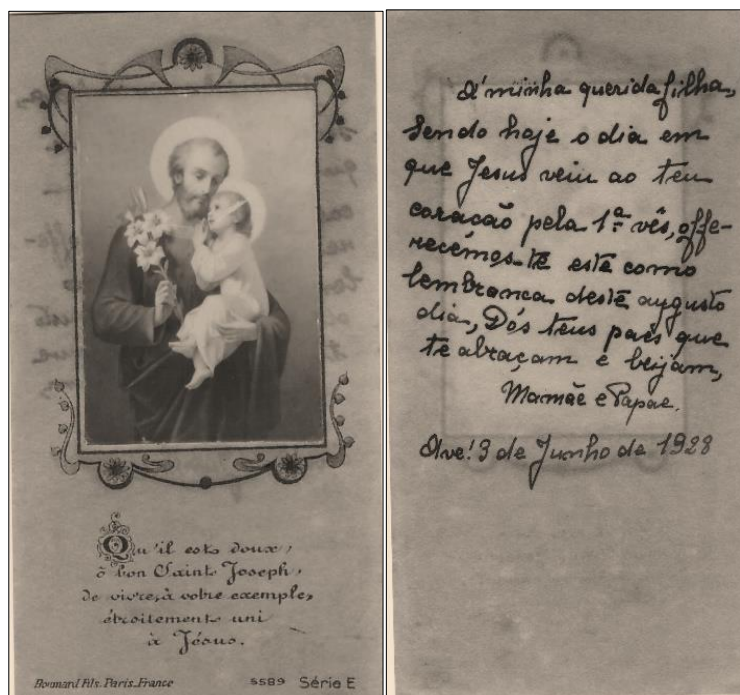 Qu'il est doux,
ô bon Saint Joseph,
de vivre, à votre exemple,
étroitement uni
à Jésus.
Boumard Fils. Paris. France
5589 Série E
A' minha querida filha,
Sendo hoje o dia em
que Jesus veiu ao teu
coração pela 1ª vês, offe-
recémos-te este como
lembranca deste augusto
dia, Dós teus paes que
te abraçam e beijam,
Mamãe e Papae.
Ave! 3 de Junho de 1928